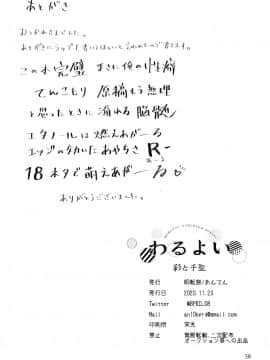 あとがき
おつかれさまでした。
あとがきにラップを書いてほしいと言われたので書きます。
この本完璧 まさに俺の性癖
てんこもり 原稿もう無理
と思ったときに溢れる脳髄
エタノールは燃えあがーる
エッジのきいたあやちさ R-
18ネタで萌えあがーる
ありがとうございました。
わるよい
彩と千聖
発行
発行日 2023.11.23
Twitter
Mail
印刷所 栄光
禁止 無断転載、二次配布、
オークション等への出品